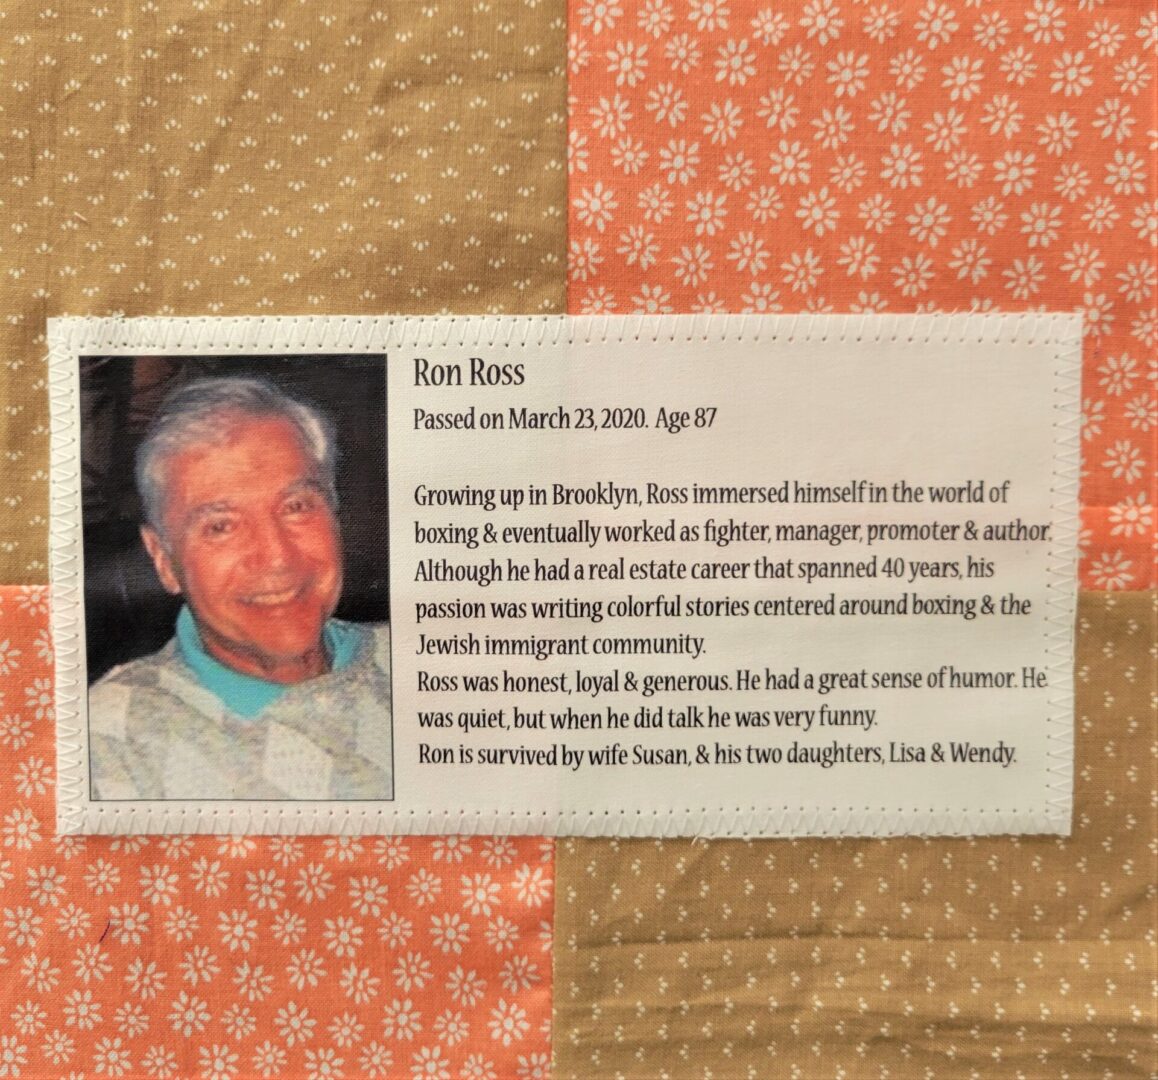 Ron Ross
Passed on March 23, 2020. Age 87
Growing up in Brooklyn, Ross immersed himself in the world of
boxing & eventually worked as fighter, manager, promoter & author.
Although he had a real estate career that spanned 40 years, his
passion was writing colorful stories centered around boxing & the
Jewish immigrant community.
Ross was honest, loyal & generous. He had a great sense of humor. He
was quiet, but when he did talk he was very funny.
Ron is survived by wife Susan, & his two daughters, Lisa & Wendy.